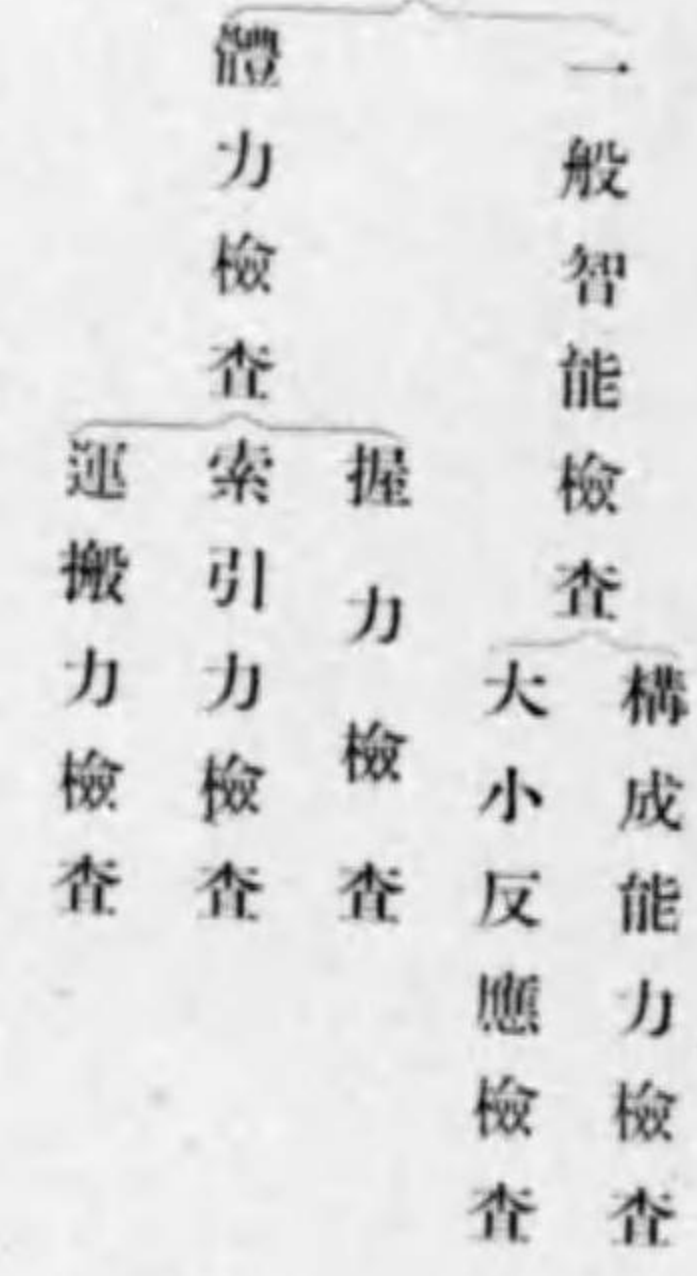 一般智能檢査
構成能力檢査
大小反應檢査
體力檢査
握力檢査
索引力檢査
運搬力檢査